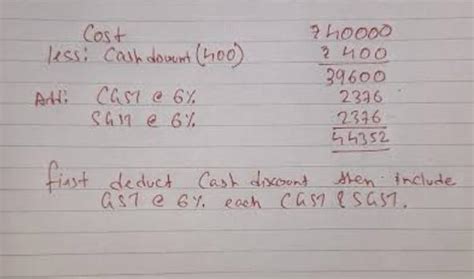 Cost ₹ 40000
less: Cash dount (400) ₹ 400
39600
Add: CGST @ 6% 2376
SGST @ 6% 2376
44352
first deduct Cash discount then include
GST @ 6% each CGST & SGST.